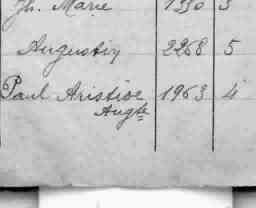 Jh. Marie 1230 3
Augustin 2268 5
Paul Aristide 1963 4
Augte